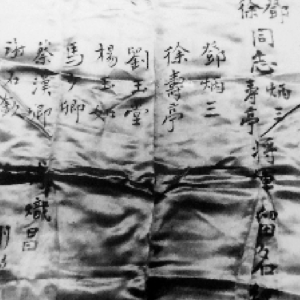 鄧徐同志炳三壽亭將軍留名
鄧炳三
徐壽亭
劉玉堂
楊玉如
馬少卿
蔡漢卿
謝石欽
熾昌